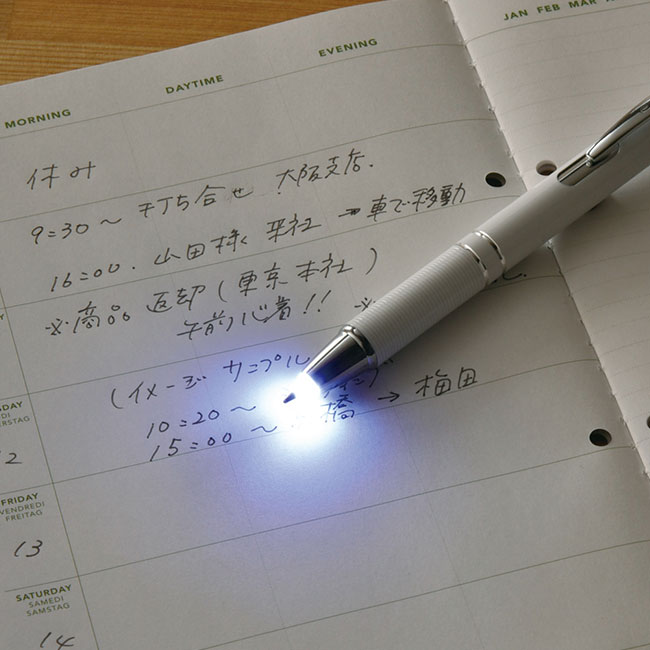 JAN FEB MAR
MORNING DAYTIME EVENING
休み
9:30〜 打ち合せ 大阪支店.
16:00. 山田様 来社 → 車で移動
※商品 返却(東京本社)
午前必着!! ※
(イメージ サンプル
10:20〜
15:00〜 橋 → 梅田
12
FRIDAY
VENDREDI
FREITAG
13
SATURDAY
SAMEDI
SAMSTAG
14